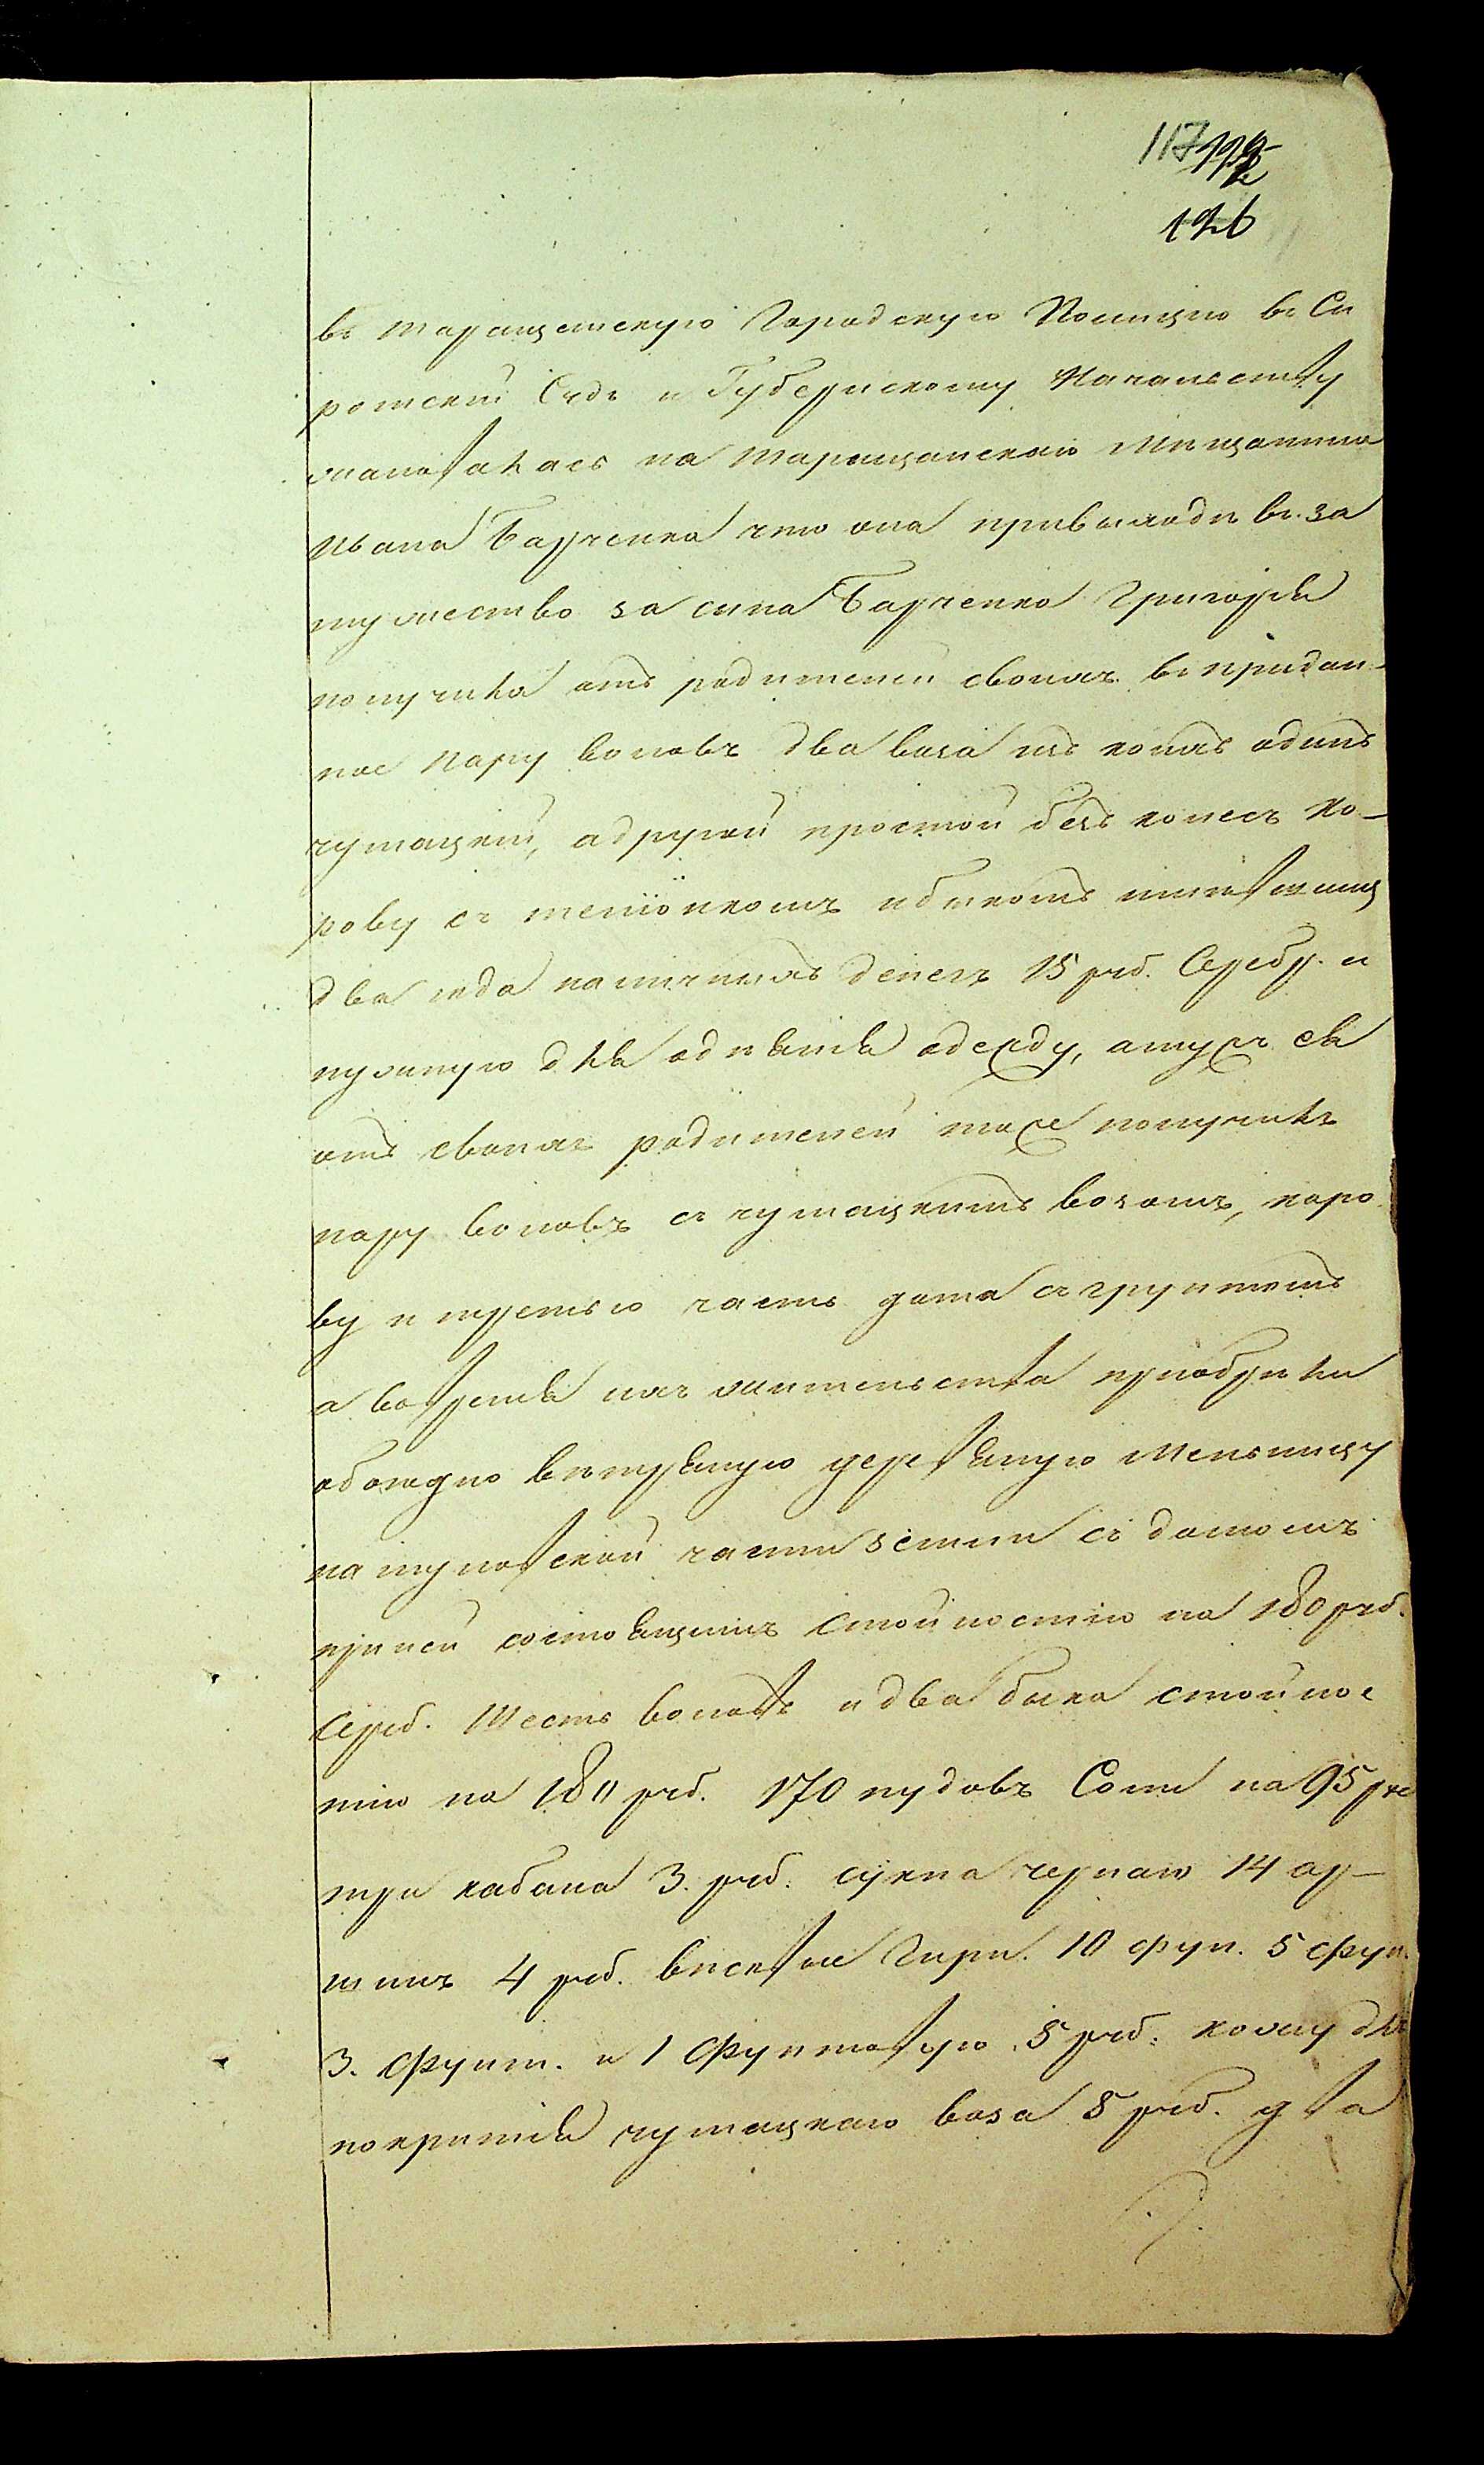 117
126
въ таращанскую Городскую Полицію въ Си
ротскій Судъ и Губернскому Начальству
жаловалась на таращанскаго Мѣщанина
Ивана Барченка что она привыходѣ въ за
мужество за сына Барченка Григорія
получила отъ родителей своихъ въ придан-
ное пару воловъ два воза изъ коихъ одинъ
чумацкій, а другой простой безъ колесъ ко-
рову съ теліонкомъ и бычкомъ имѣвшимъ
два года наличныхъ денегъ 15 руб. Серебр. и
нужную для одѣянія одежду, а мужъ ея
отъ своихъ родителей тоже получилъ
пару воловъ съ чумацкимъ возомъ, коро
ву и третью часть дома съ грунтомъ
а во время ихъ жительства пріобрѣли
обоюдно вѣтряную деревяную Мельницу
на муновской части земли съ домомъ
при ней состоящимъ стоимостію на 180 руб.
сереб. Шесть воловъ и два быка стоимос
тію на 180 руб. 170 пудовъ Соли на 95 руб
три кабана 3. руб. сукна чернаго 14 ар-
шинъ 4 руб. висовые Гири. 10 фун. 5 фун.
3. Фунт. и 1 Фунтовую 5 руб. кожу для
покрытія чумацкаго воза 5 руб. два